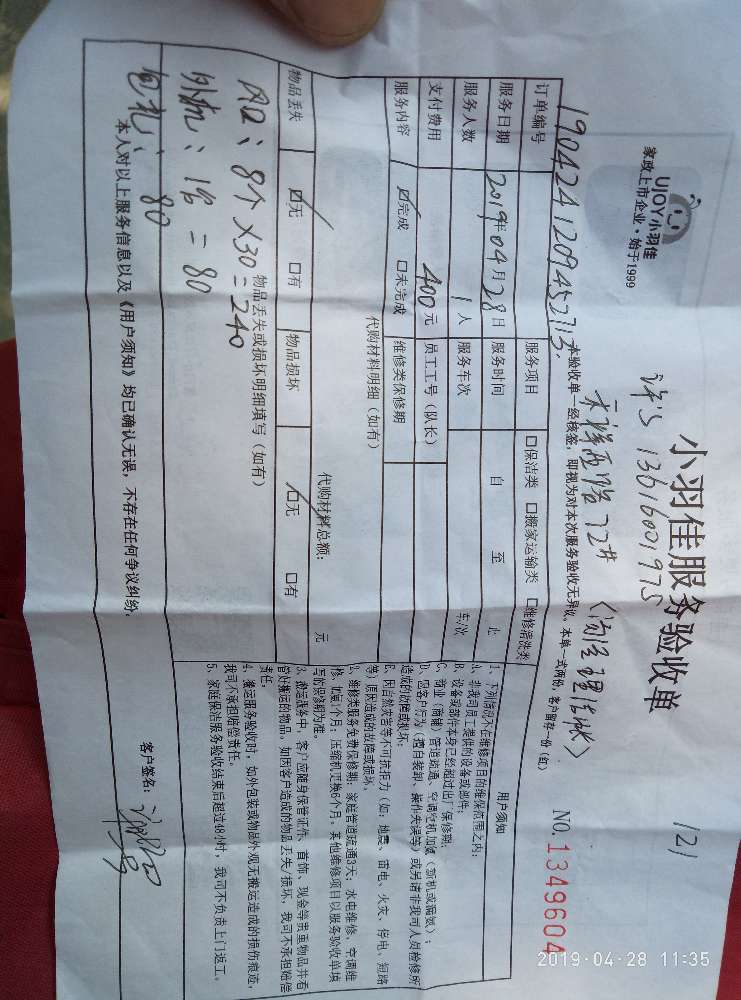 UJOY小羽佳
家政上市企业·始于1999
小羽佳服务验收单
121
13616001975
72#
NO.1349604
1904241209452713.
本验收单一经核签，即视为对本次服务验收无异议。本单一式两份，客户留存一份（红）
订单编号 服务项目 □保洁类 □搬家运输类 □维修清洗类
服务日期 2019年04月28日 服务时间 自 至 止
服务人数 1人 服务车次 车/次
支付费用 400元 员工工号（队长）
服务内容 ☑完成 □未完成 维修类保修期
代购材料明细（如有）
代购材料总额： 元
物品丢失 ☑无 □有 物品损坏 ☑无 □有
物品丢失或损坏明细填写（如有）
风口：8个×30=240
外机：1台=80
包扎：80
本人对以上服务信息以及《用户须知》均已确认无误，不存在任何争议纠纷。
用户须知
1、下列情况不在维修项目的维保范围之内：
A、非我司员工提供的设备或部件；
B、设备或部件本身已经超过出厂保修期；
C、商业（商铺）管道疏通、空调空机加氟（新机或漏氟）；
D、因客户行为（擅自装卸、操作失误等）或另请非我司人员检修所
造成的故障或损坏；
E、因自然灾害等不可抗拒力（如：地震、雷电、火灾、停电、短路
等）原因造成的故障或损坏。
2、维修类服务免费保修期：家庭管道疏通3天；水电维修、空调维
修、加氟1个月；压缩机更换6个月，其他维修项目以服务验收单填
写的保修期为准。
3、搬运服务中，客户应随身保管证件、首饰、现金等贵重物品并看
管好搬运的物品。如因客户造成的物品丢失/损坏，我司不承担赔偿
责任。
4、搬运服务验收时，如外包装或物品外观无搬运造成的损伤痕迹，
我司不承担赔偿责任。
5、家庭保洁服务验收结束后超过48小时，我司不负责上门返工。
客户签名：
2019-04-28 11:35